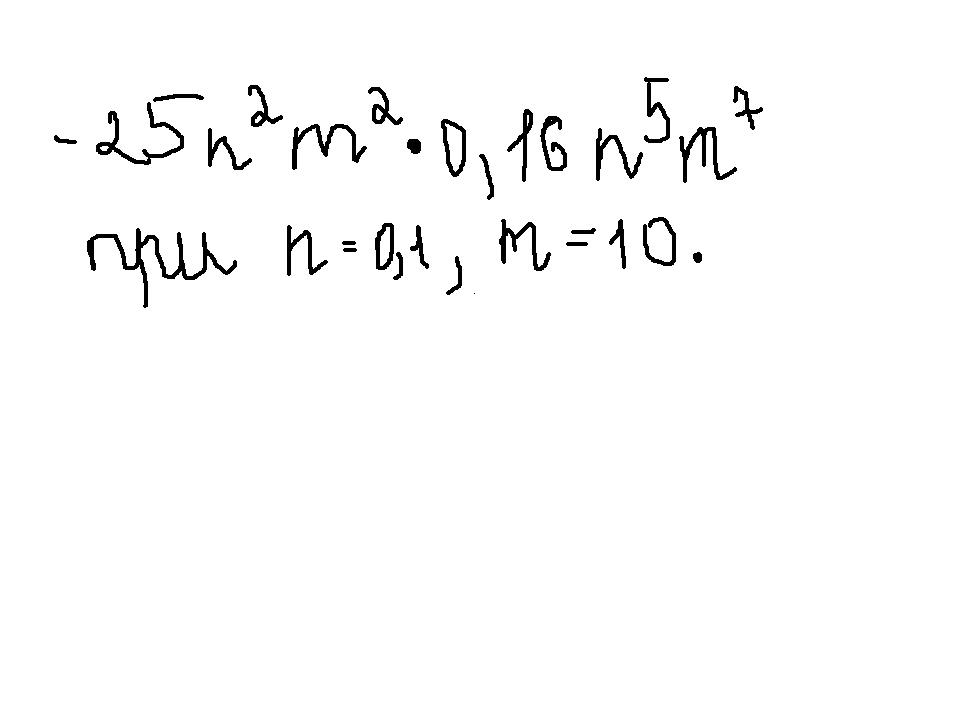 -25n²m²·0,16n⁵m⁷
при n=0,1, m=10.